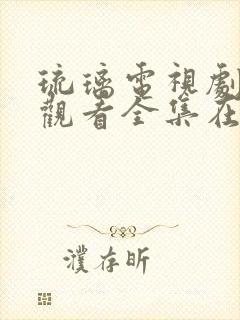 琉璃電視劇
觀看全集在
濮存昕